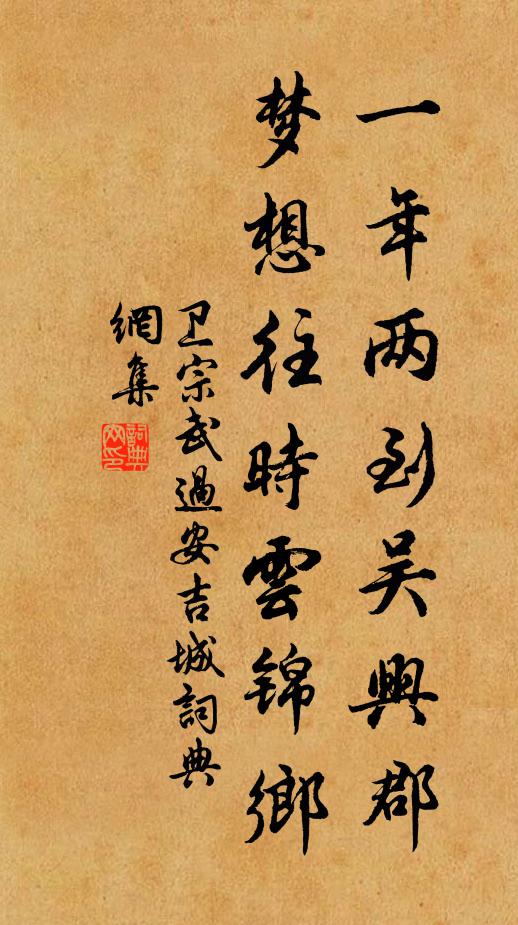 一年两到吴興郡
梦想往時雲锦鄉
卫宗武過安吉城詞典
網集
詞典
网印